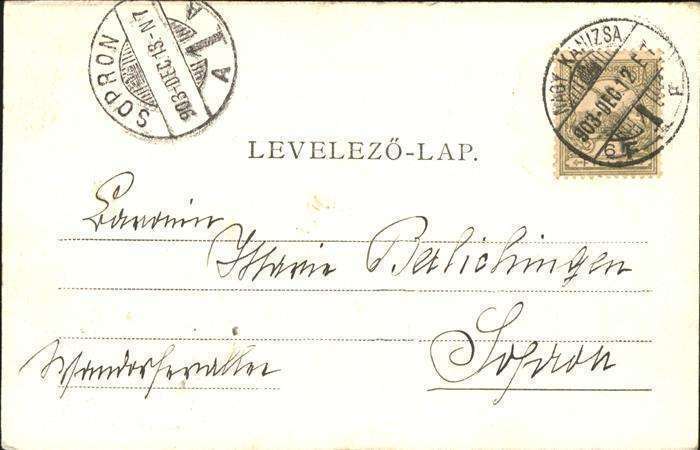 SOPRON
903·DEC.13·N7
A
A
NAGY KANIZSA
903·DEC.12·E
F
6
LEVELEZŐ-LAP.
Baronin
Marie Berlichingen
Sopron